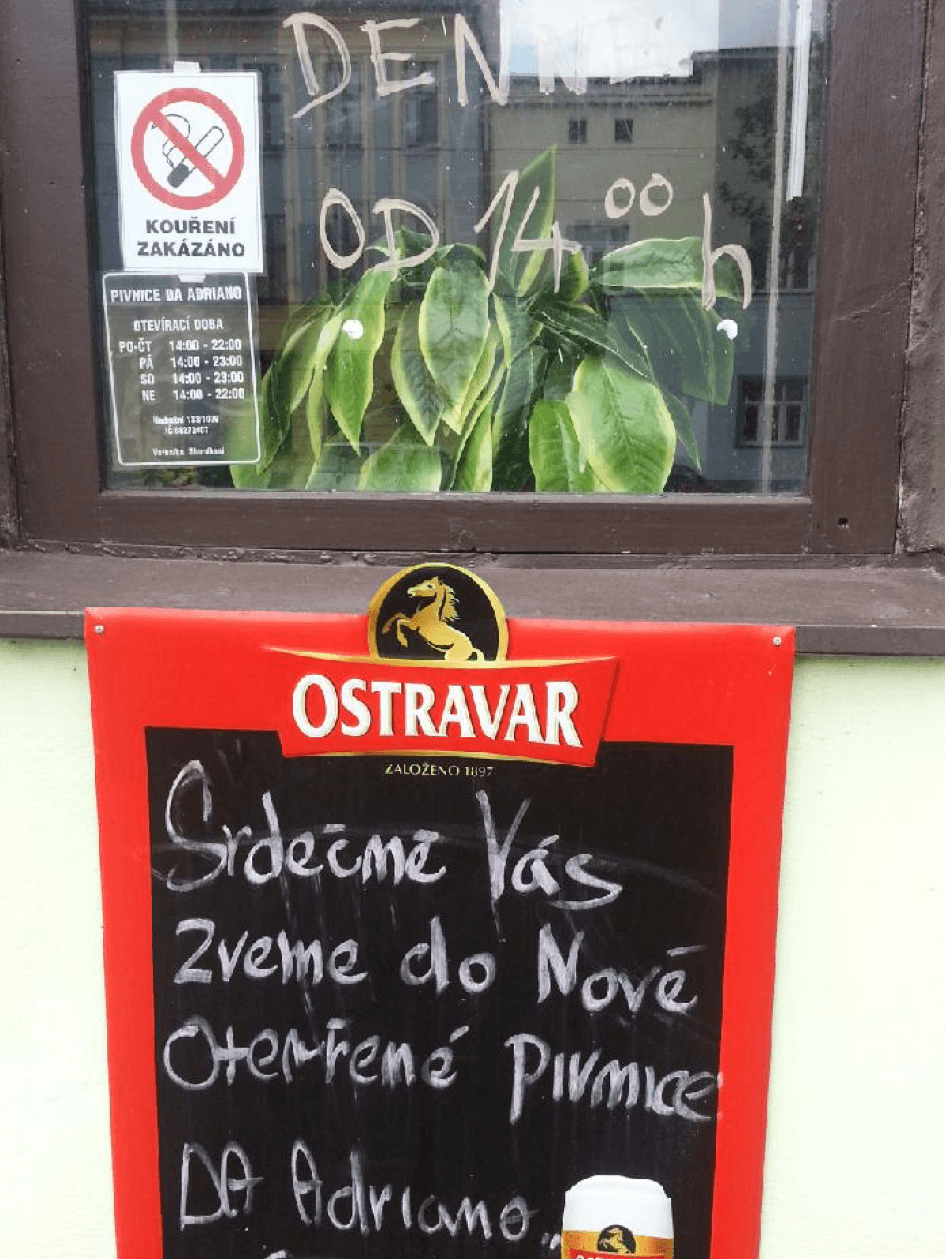 DENNĚ
OD 14 00 h
KOUŘENÍ
ZAKÁZÁNO
PIVNICE DA ADRIANO
OTEVÍRACÍ DOBA
PO-ČT 14:00 - 22:00
PÁ 14:00 - 23:00
SO 14:00 - 23:00
NE 14:00 - 22:00
Veronika
OSTRAVAR
ZALOŽENO 1897
Srdečně Vás
Zveme do Nově
Oteřené Pivnice
DA Adriano..